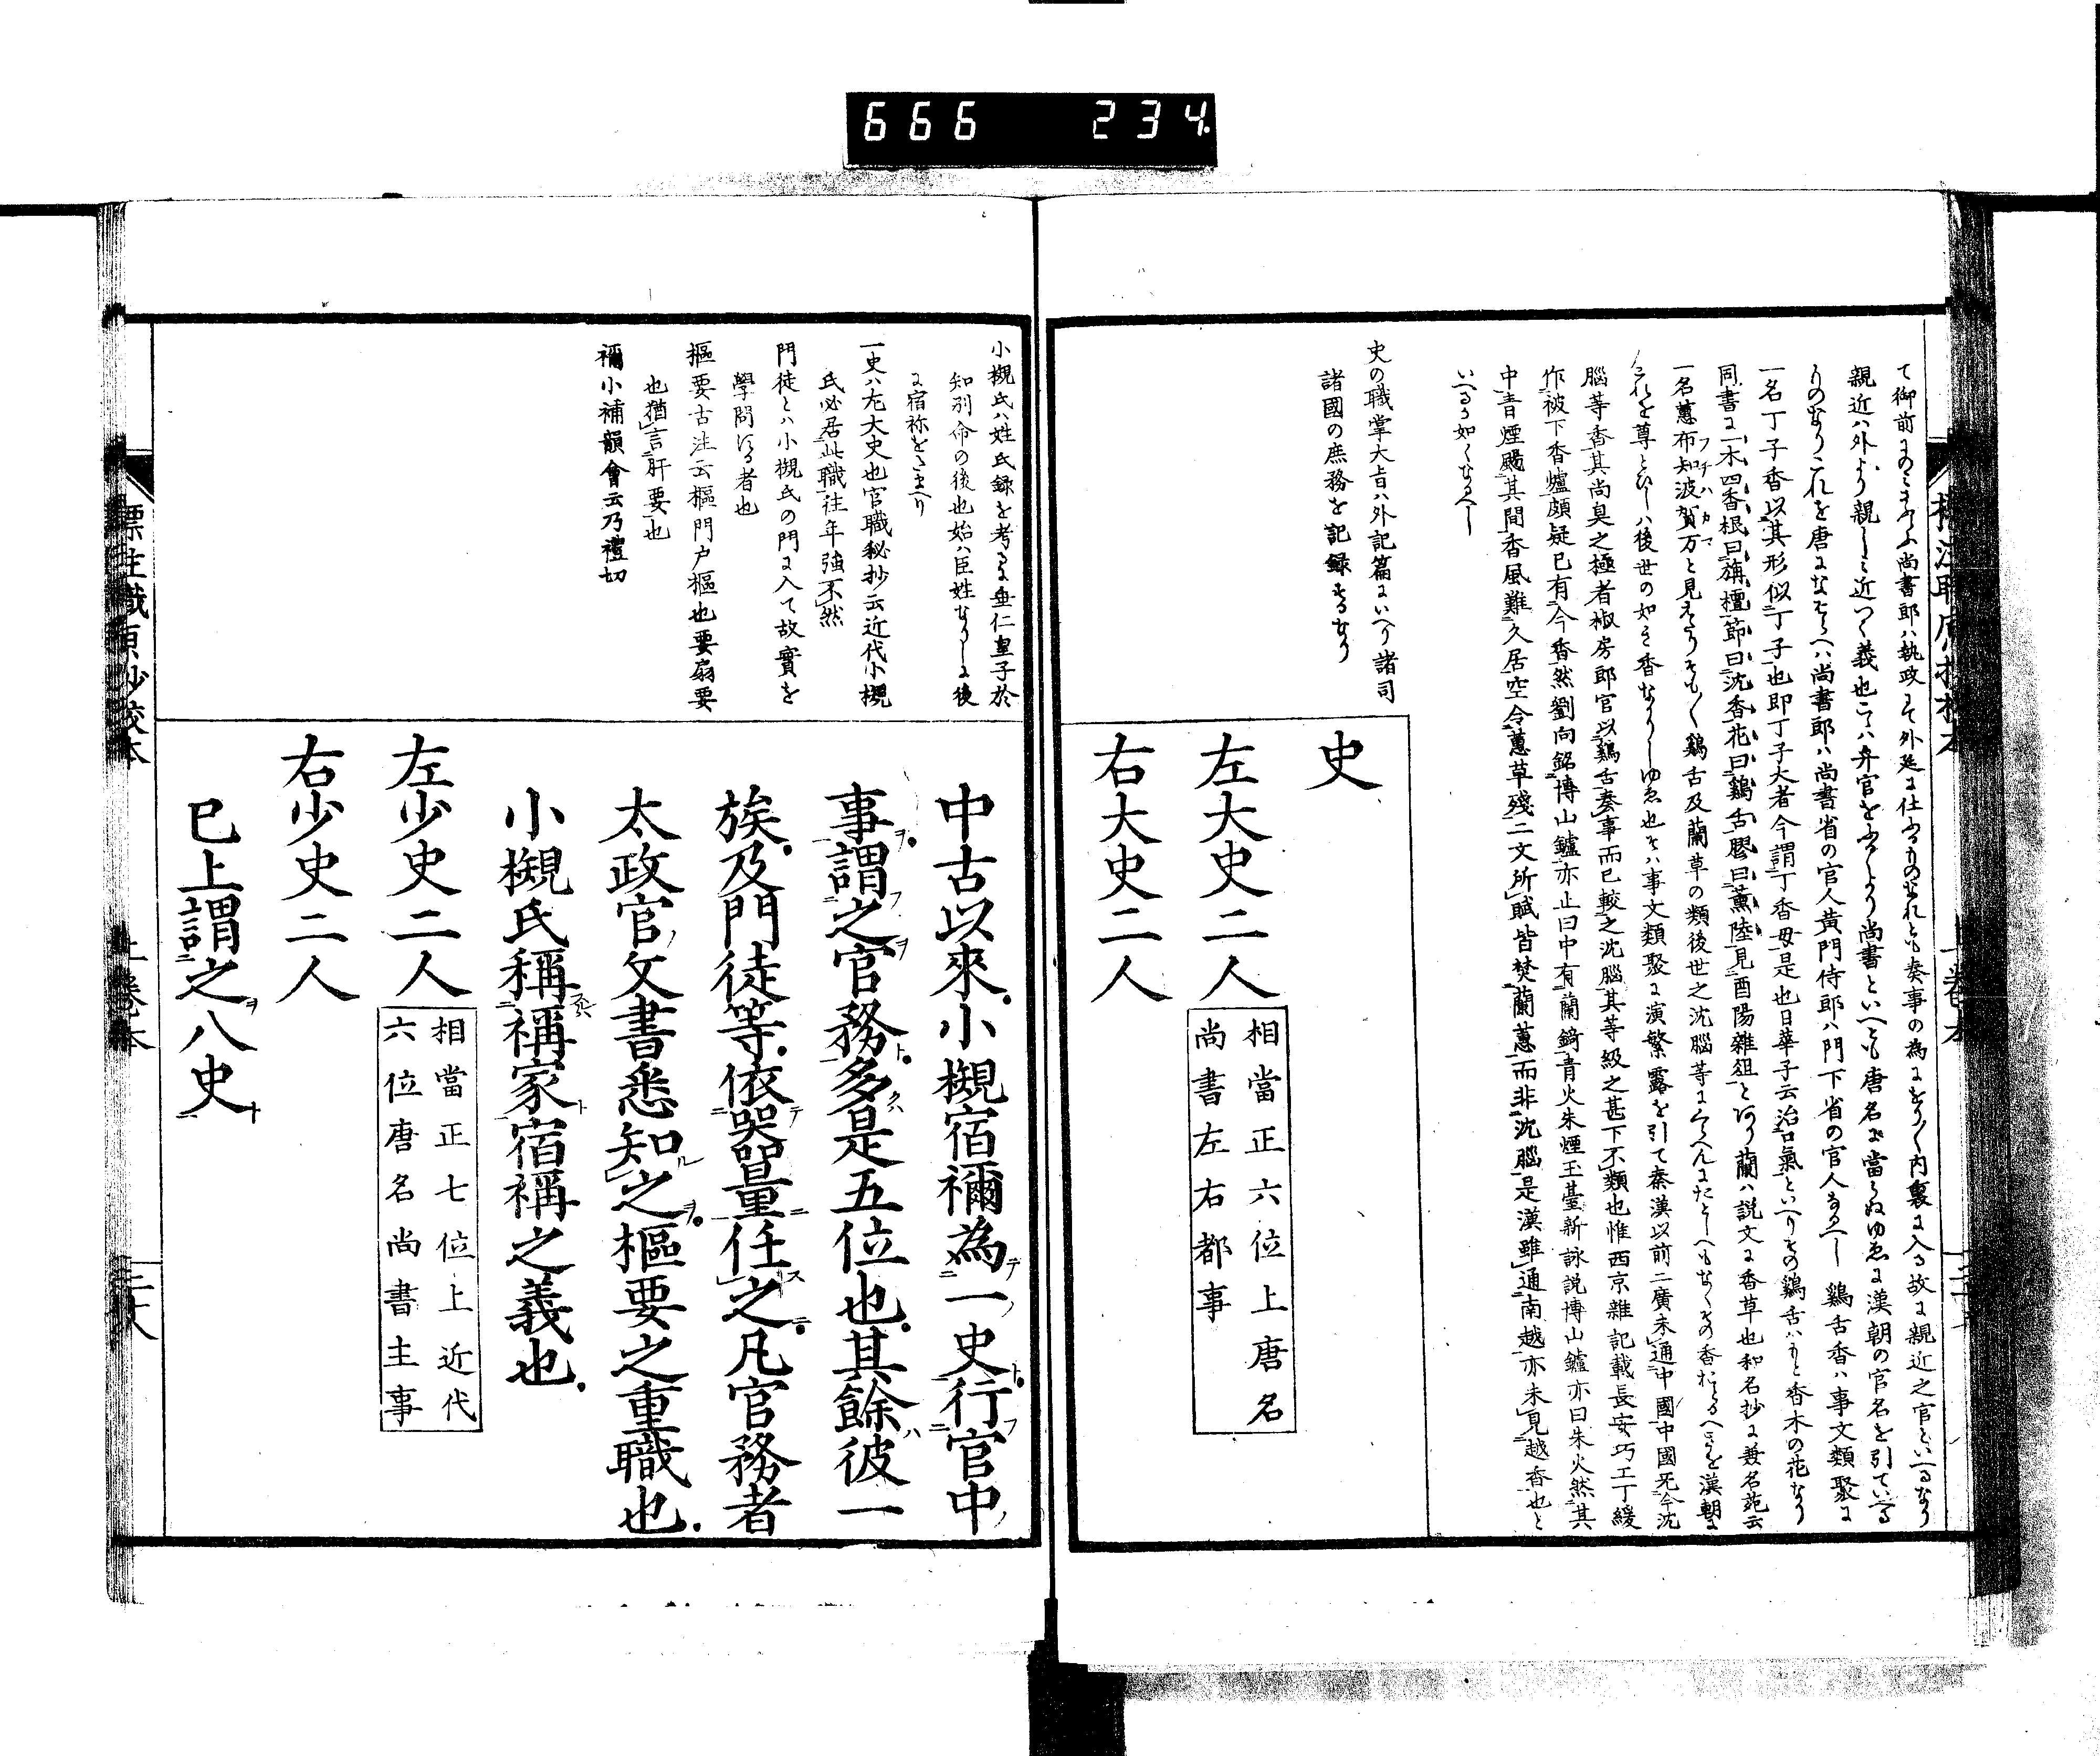 666 234.
て御前
尚書郎ハ執政
奏事の為
内裏に入る故に親近之官といへるなり
親近ハ外より親しく近つく義也
唐名に當らぬゆゑに漢朝の官名を引ていへる
これを唐になそらへハ尚書郎ハ尚書省の官人黄門侍郎ハ門下省の官人なるへし鷄舌香ハ事文類聚に
一名丁子香以其形似丁子也即丁子大者今謂丁香母是也日華子云治口氣といへりその鷄舌ハもと香木の花なり
同書に一木四香根曰旃檀節曰沈香花曰鷄舌膠曰薫陸見酉陽雜俎とあり蘭ハ説文に香草也和名抄に兼名苑云
一名蕙布知波賀万と見えたり
鷄舌及蘭草の類後世之沈腦等
漢朝に
これを尊とひしハ後世の如き香なかりしゆゑ也そハ事文類聚に演繁露を引て秦漢以前二廣未通中國中國无今沈
腦等香其尚臭之極者椒房郎官以鷄舌奏事而已較之沈腦其等級之甚下不類也惟西京雜記載長安巧工丁緩
作被下香爐頗疑已有今香然劉向銘博山鑪亦止曰中有蘭錡青火朱煙玉臺新詠説博山鑪亦曰朱火然其
中青煙颺其間香風難久居空令蕙草殘二文所賦皆焚蘭蕙而非沈腦是漢雖通南越亦未見越香也と
いへるか如くなるへし
史の職掌大旨ハ外記篇にいへり諸司
諸國の庶務を記録するなり
史
左大史二人
相當正六位上唐名
尚書左右都事
右大史二人
小槻氏ハ姓氏録を考るに垂仁皇子於
知別命の後也始ハ臣姓なりしに後
に宿祢をたまへり
一史ハ左大史也官職秘抄云近代小槻
氏必居此職往年強不然
門徒とハ小槻氏の門に入て故實を
學問する者也
樞要古注云樞門戸樞也要扇要
也猶言肝要也
禰小補韻會云乃禮切
中古以來小槻宿禰為一史行官中
事謂之官務多是五位也其餘彼一
族及門徒等依器量任之凡官務者
太政官文書悉知之樞要之重職也
小槻氏稱禰家宿禰之義也
左少史二人
相當正七位上近代
六位唐名尚書主事
右少史二人
已上謂之八史
標注職原抄校本
上卷本